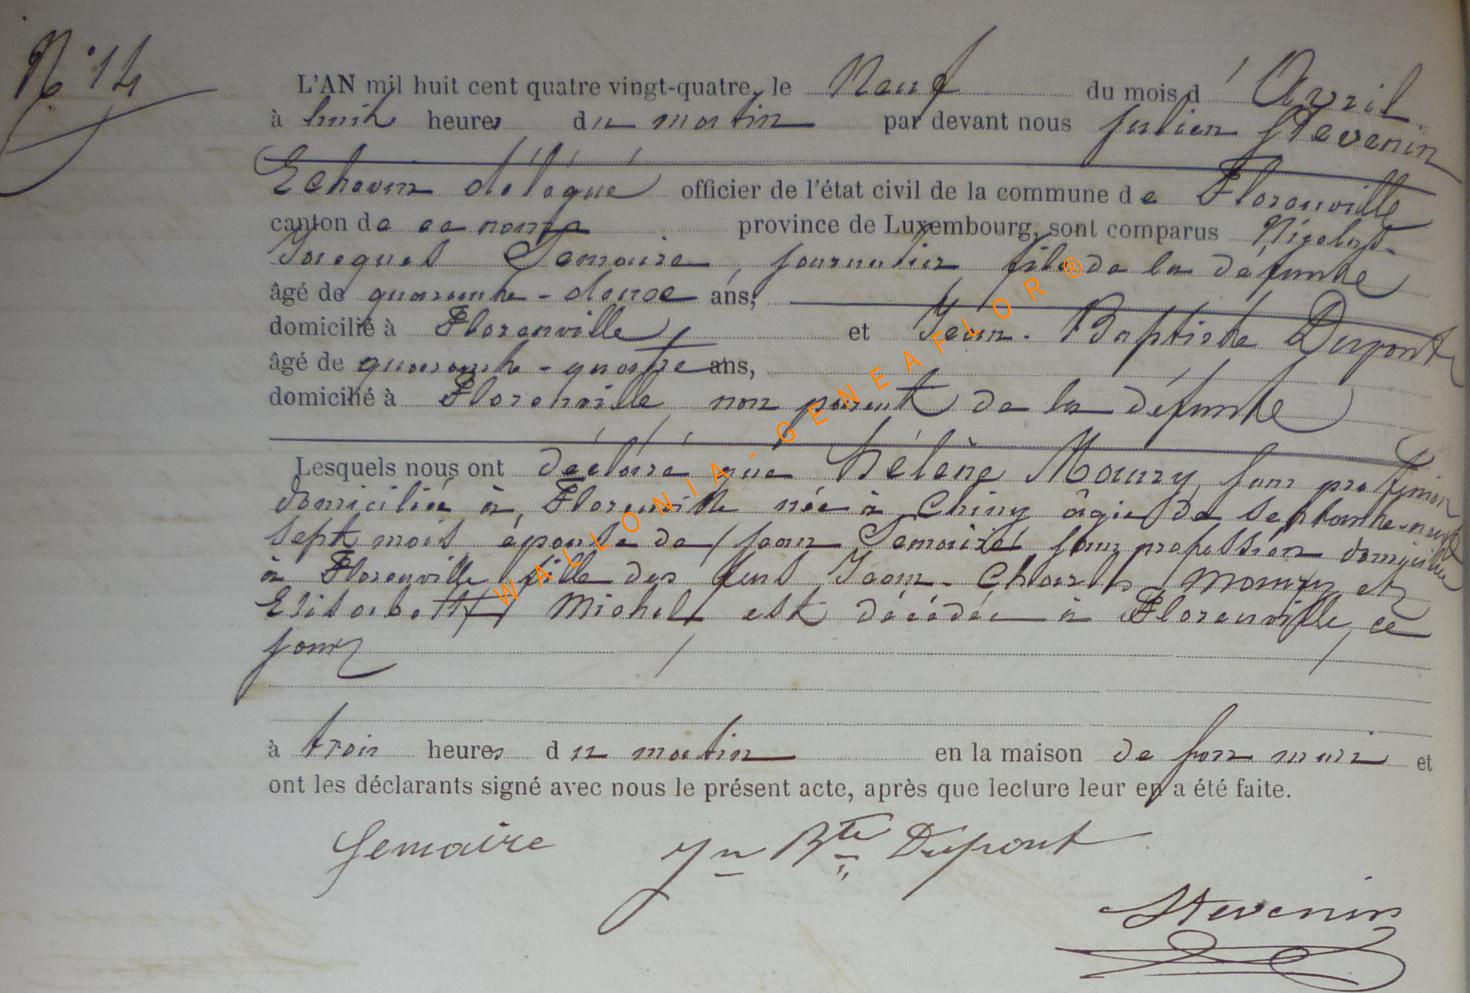 N° 14
L'AN mil huit cent quatre vingt-quatre, le Neuf du mois d'Avril
à huit heures du matin par devant nous Julien Stevenin
Echevin délégué officier de l'état civil de la commune de Florenville
canton de ce nom province de Luxembourg, sont comparus Nicolas-
Jacques Semaire, journalier fils de la défunte
âgé de quarante-douze ans,
domicilié à Florenville, et Jean-Baptiste Dupont
âgé de quarante-quatre ans,
domicilié à Florenville, non parent de la défunte
Lesquels nous ont déclaré que Hélène Maury, sans profession
domiciliée à Florenville née à Chiny âgée de septante-neuf
sept mois épouse de Jean Semaire sans profession domicilié
à Florenville fille des feus Jean-Charles Maury et
Elisabeth Michel est décédée à Florenville, ce
jour
à trois heures du matin en la maison de son mari et
ont les déclarants signé avec nous le présent acte, après que lecture leur en a été faite.
Semaire Jn Bte Dupont
Stevenin
WALLONIA-GENEAFLOR®